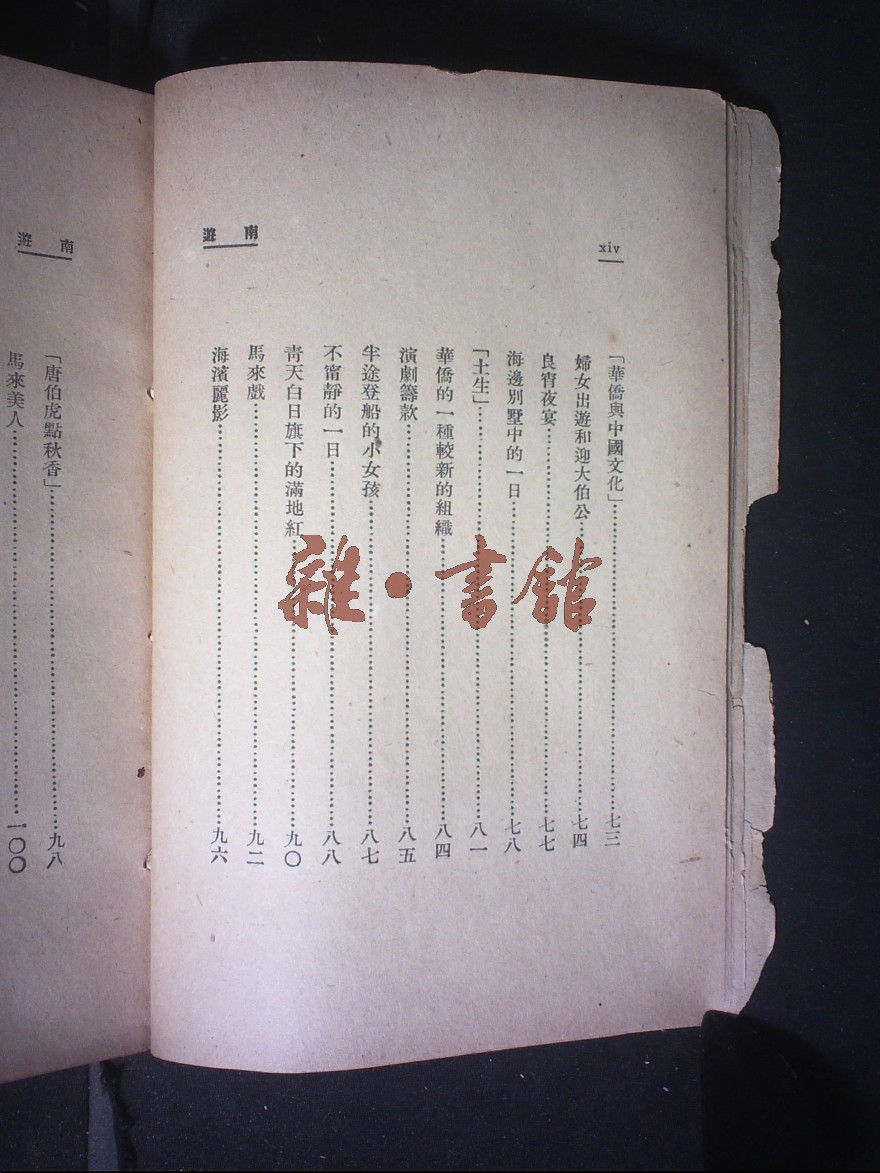 xiv
「華僑與中國文化」……七三
婦女出遊和迎大伯公……七四
良宵夜宴……七七
海邊別墅中的一日……七八
「土生」……八一
華僑的一種較新的組織……八四
演劇籌款……八五
半途登船的小女孩……八七
不甯靜的一日……八八
青天白日旗下的滿地紅……九〇
馬來戲……九二
海濱麗影……九六
南遊
雜·書館
南遊
「唐伯虎點秋香」……九八
馬來美人……一〇〇